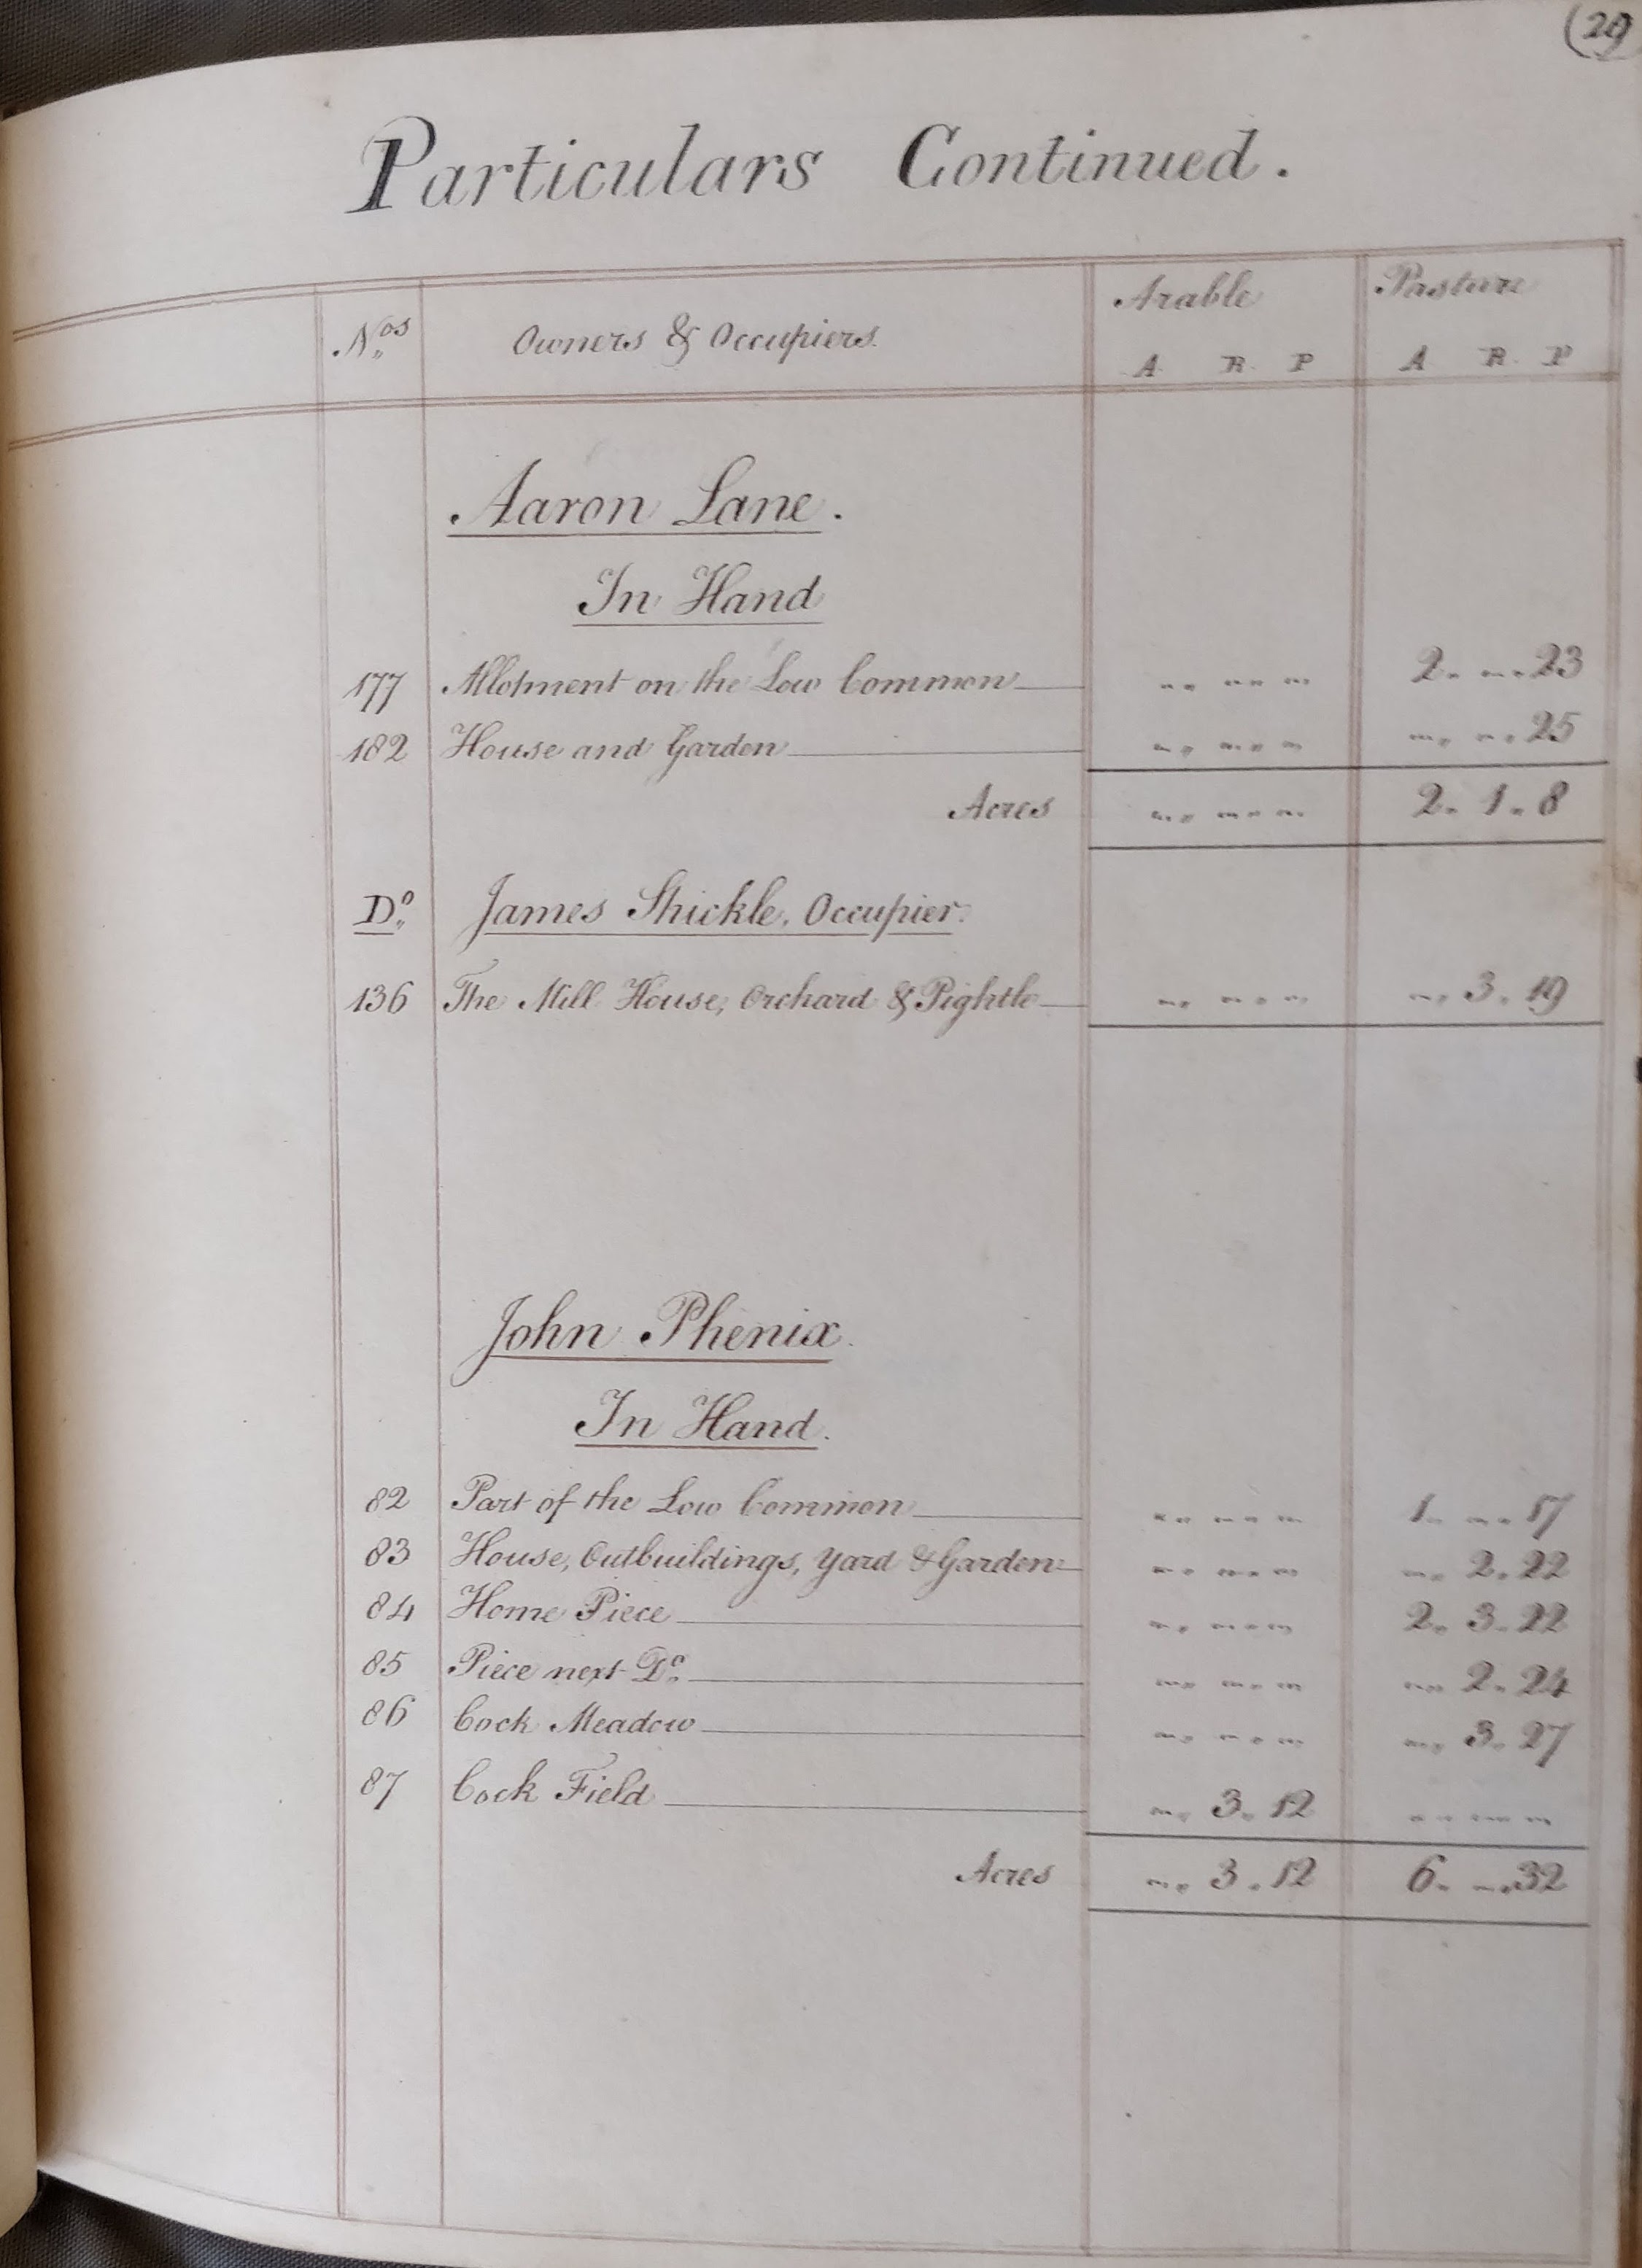 (29
Particulars Continued.
Nos Owners & Occupiers. Arable Pasture
A. R. P A R. P
Aaron Lane.
In Hand
177 Allotment on the Low Common 2. „.23
182 House and Garden „. „.25
Acres 2. 1. 8
Do James Shickle, Occupier.
136 The Mill House, Orchard & Pightle „. 3. 19
John Phenix.
In Hand.
82 Part of the Low Common 1. „. 17
83 House, Outbuildings, Yard & Garden „. 2. 22
84 Home Piece 2. 3. 22
85 Piece next Do „. 2. 24
86 Cock Meadow „. 3. 27
87 Cock Field „. 3. 12
Acres „. 3. 12 6. „.32